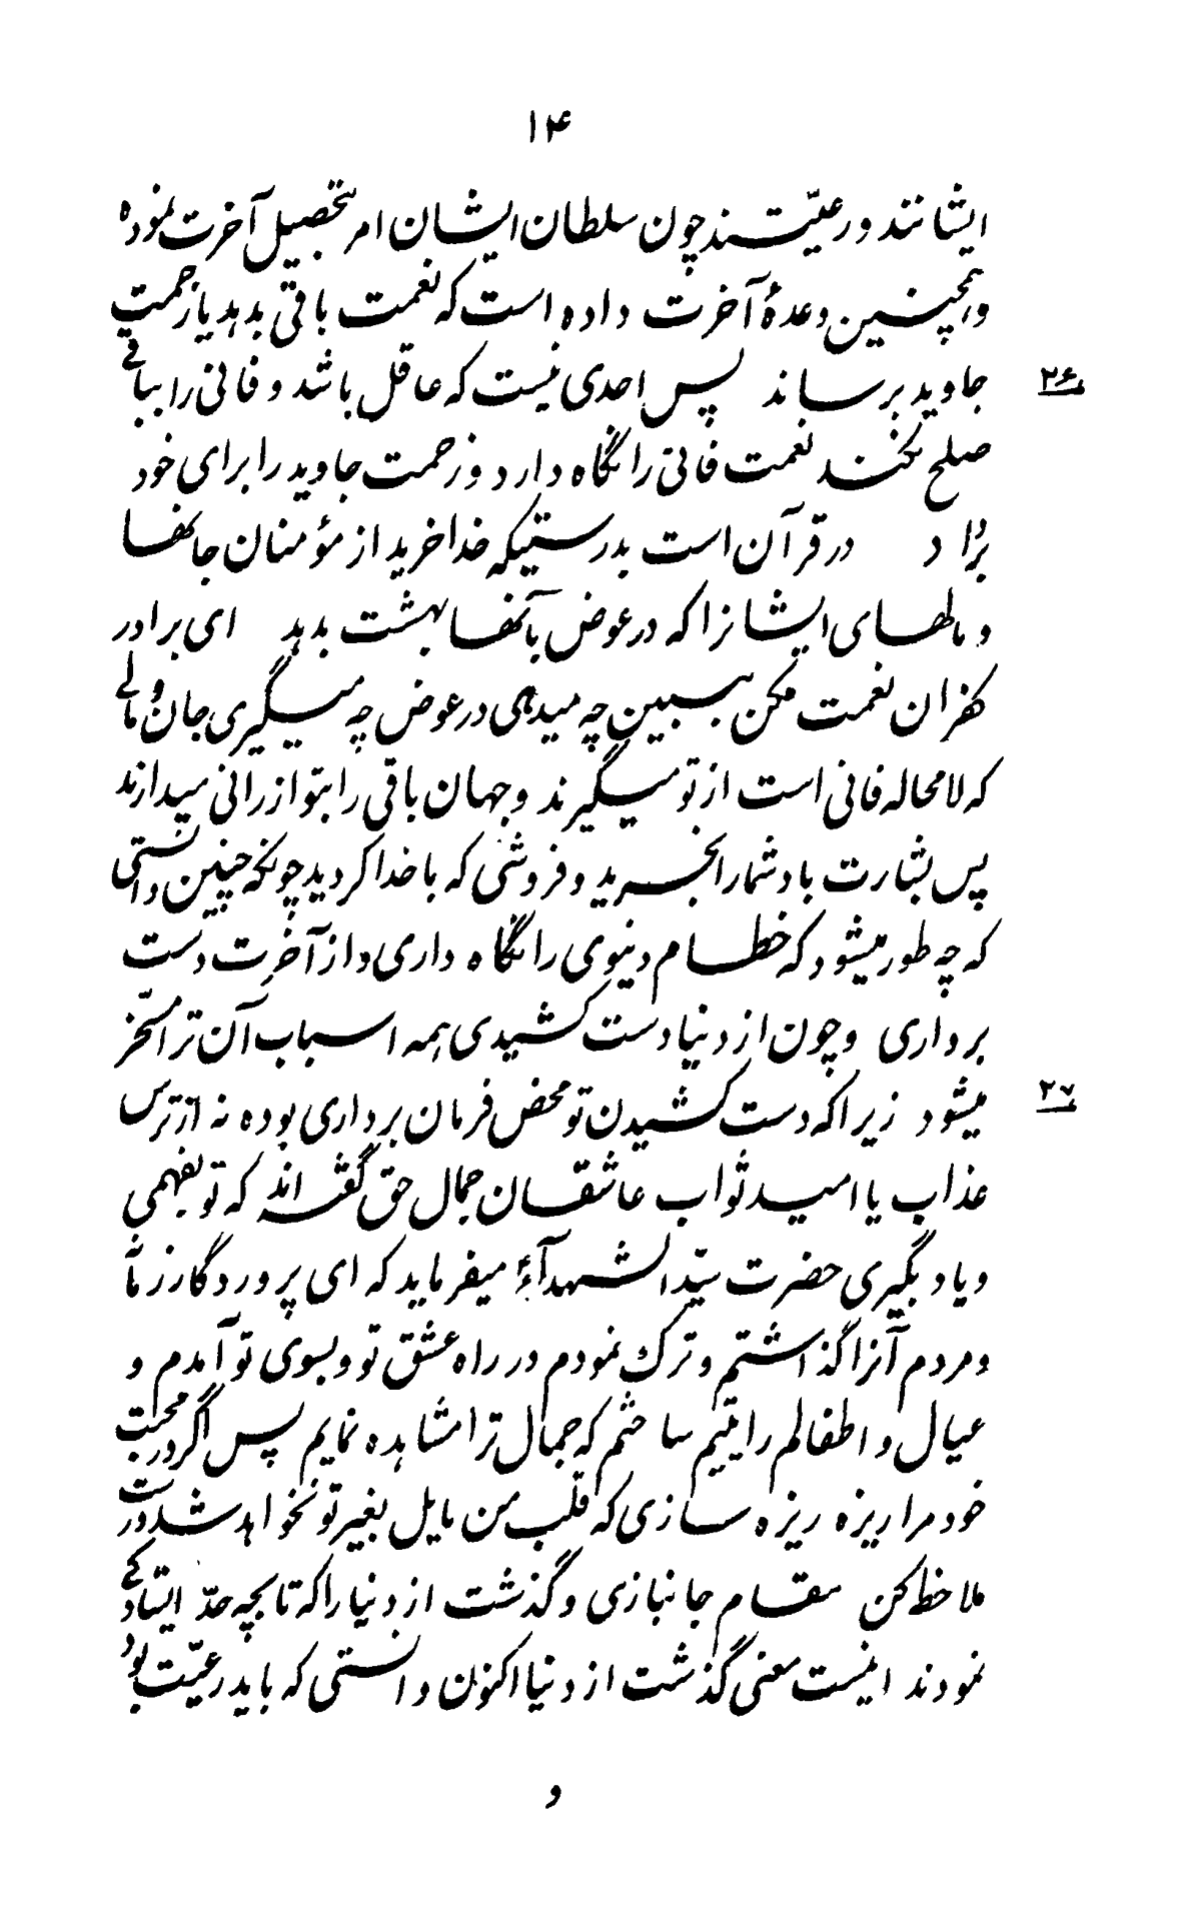 ۱۴
ایشانند و رعیّتند چون سلطان ایشان امر بتحصیل آخرت نموده
و همچنین وعدهٔ آخرت داده است که نعمت باقی بدهد یا زحمت
جاوید برساند پس احدی نیست که عاقل باشد و فانی را بباقی
۲۶
صلح نکند نعمت فانی را نگاه دارد و زحمت جاوید را برای خود
در قرآن است بدرستیکه خدا خرید از مؤمنان جانها
و مالهای ایشانرا که در عوض بآنها بهشت بدهد ای برادر
کفران نعمت مکن ببین چه میدهی در عوض چه میگیری جان و مالی
که لامحاله فانی است از تو میگیرند و جهان باقی را بتو ارزانی میدارند
پس بشارت باد شما را بخرید و فروشی که با خدا کردید چونکه چنین دانستی
که چه طور میشود که حطام دنیوی را نگاه داری و از آخرت دست
برداری و چون از دنیا دست کشیدی همه اسباب آن ترا مسخّر
میشود زیرا که دست کشیدن تو محض فرمان برداری بوده نه از ترس
۲۷
عذاب یا امید ثواب عاشقان جمال حق گفته اند که تو بفهمی
و یاد بگیری حضرت سیّد الشهدآء میفرماید که ای پروردگار
و مردم آنرا گذاشتم و ترک نمودم در راه عشق تو و بسوی تو آمدم و
عیال و اطفالم را یتیم ساختم که جمال ترا مشاهده نمایم پس اگر در محبت
خود مرا ریزه ریزه سازی که قلب من مایل بغیر تو نخواهد شد درست
ملاحظه کن مقام جانبازی و گذشت از دنیا را که تا بچه حدّ ایستادگی
نمودند اینست معنی گذشت از دنیا اکنون دانستی که باید رعیّت بود
و